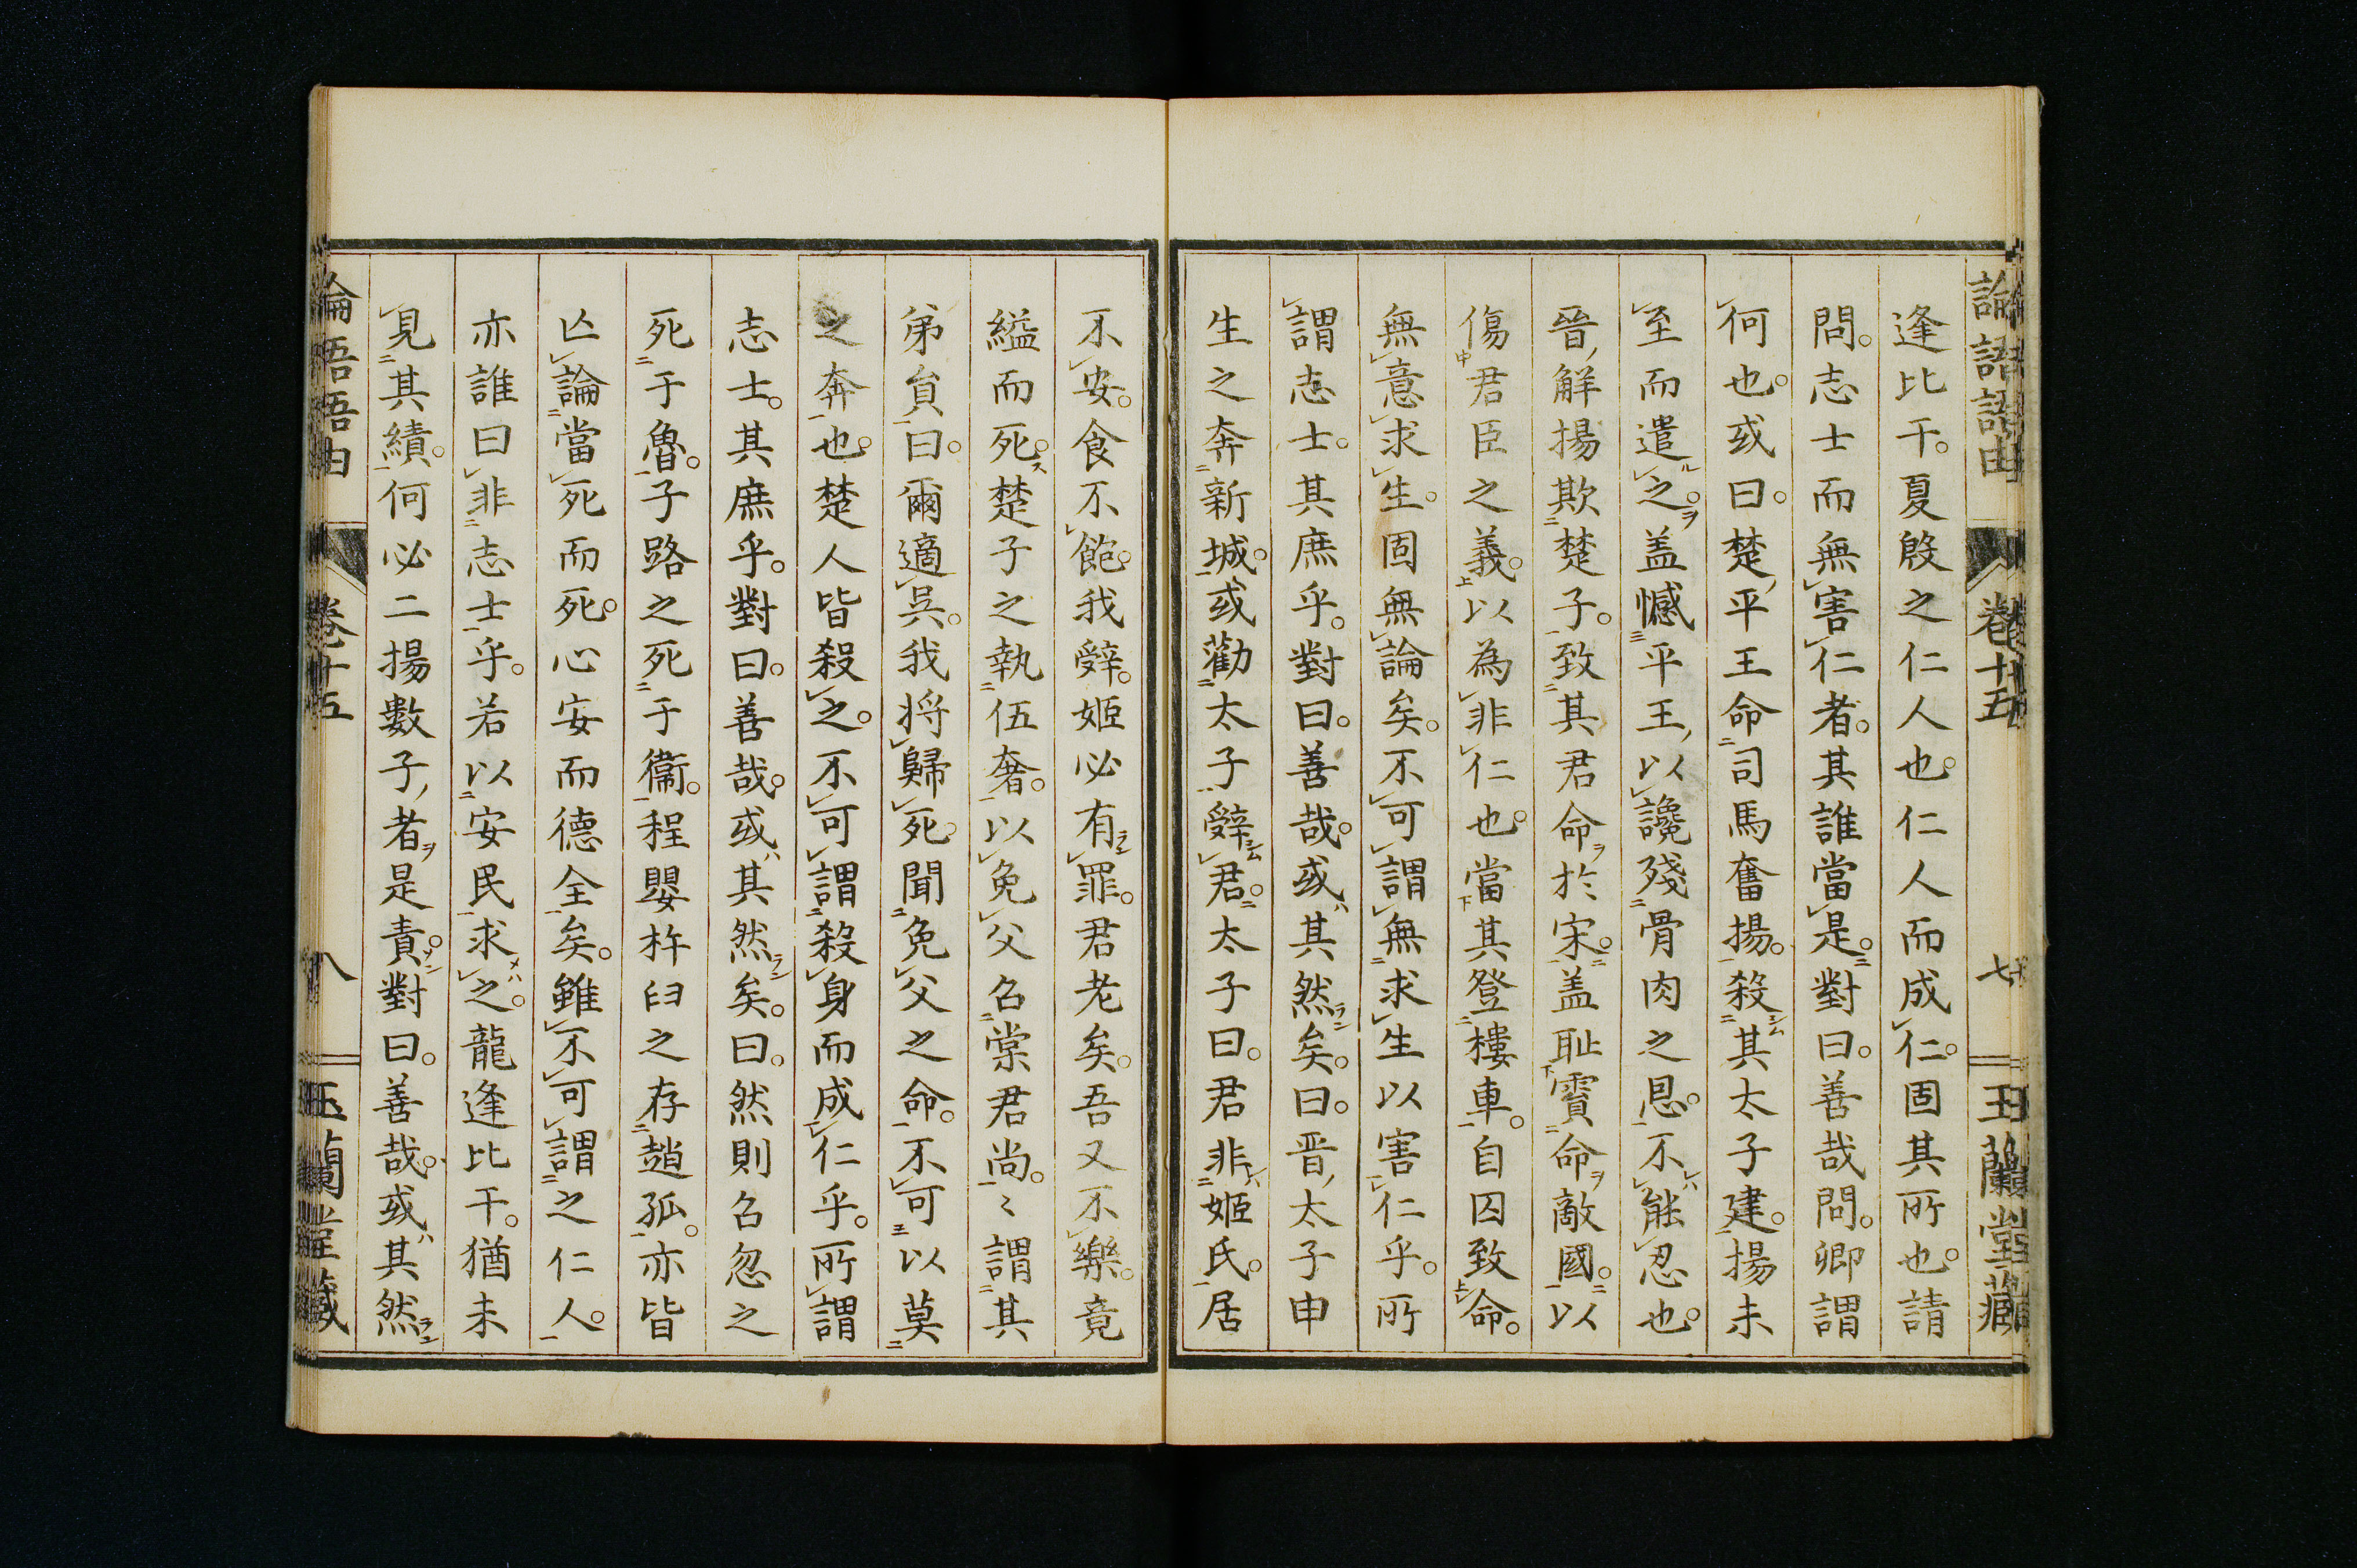 論語語由 卷十五 七 玉蘭堂藏
逢比干。夏殷之仁人也。仁人而成仁。固其所也。請
問。志士而無害仁者。其誰當是。對曰。善哉問。卿謂
何也。或曰。楚平王命司馬奮揚。殺其太子建。揚未
至而遣之。盖憾平王以讒殘骨肉之恩。不能忍也。
晉解揚欺楚子。致其君命於宋。盖耻賣命敵國。以
傷君臣之義。以為非仁也。當其登樓車。自囚致命。
無意求生。固無論矣。不可謂無求生以害仁乎。所
謂志士。其庶乎。對曰。善哉。或其然矣。曰。晋太子申
生之奔新城。或勸太子辭君。太子曰。君非姬氏。居
不安。食不飽。我辭。姬必有罪。君老矣。吾又不樂。竟
縊而死。楚子之執伍奢。以免父召棠君尚。〻謂其
弟貟曰。爾適吳。我将歸死。聞免父之命。不可以莫
之奔也。楚人皆殺之。不可謂殺身而成仁乎。所謂
志士。其庶乎。對曰。善哉。或其然矣。曰。然則召忽之
死于魯。子路之死于衞。程嬰杵臼之存趙孤。亦皆
亾論當死而死。心安而德全矣。雖不可謂之仁人。
亦誰曰非志士乎。若以安民求之。龍逢比干。猶未
見其績。何必二揚數子者是責。對曰。善哉。或其然
論語語由 卷十五 八 玉蘭堂藏